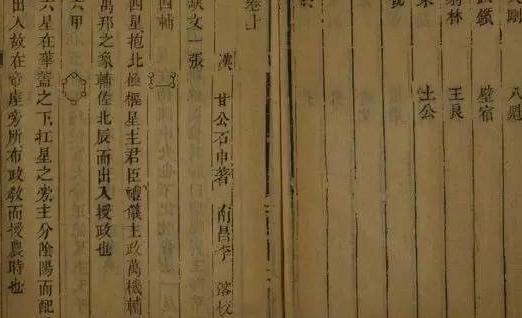 八魁
鑕 壁宿
羽林 王良
土公
卷上
漢 甘公石申著 南昌李 落校
缺文一張
四輔
四星抱北極樞星主君臣禮儀主政萬機輔
萬邦之象輔佐北辰而出入授政也
六甲
六星在華蓋之下杠星之旁主分陰陽而配
出入故在帝座旁所布政教而授農時也